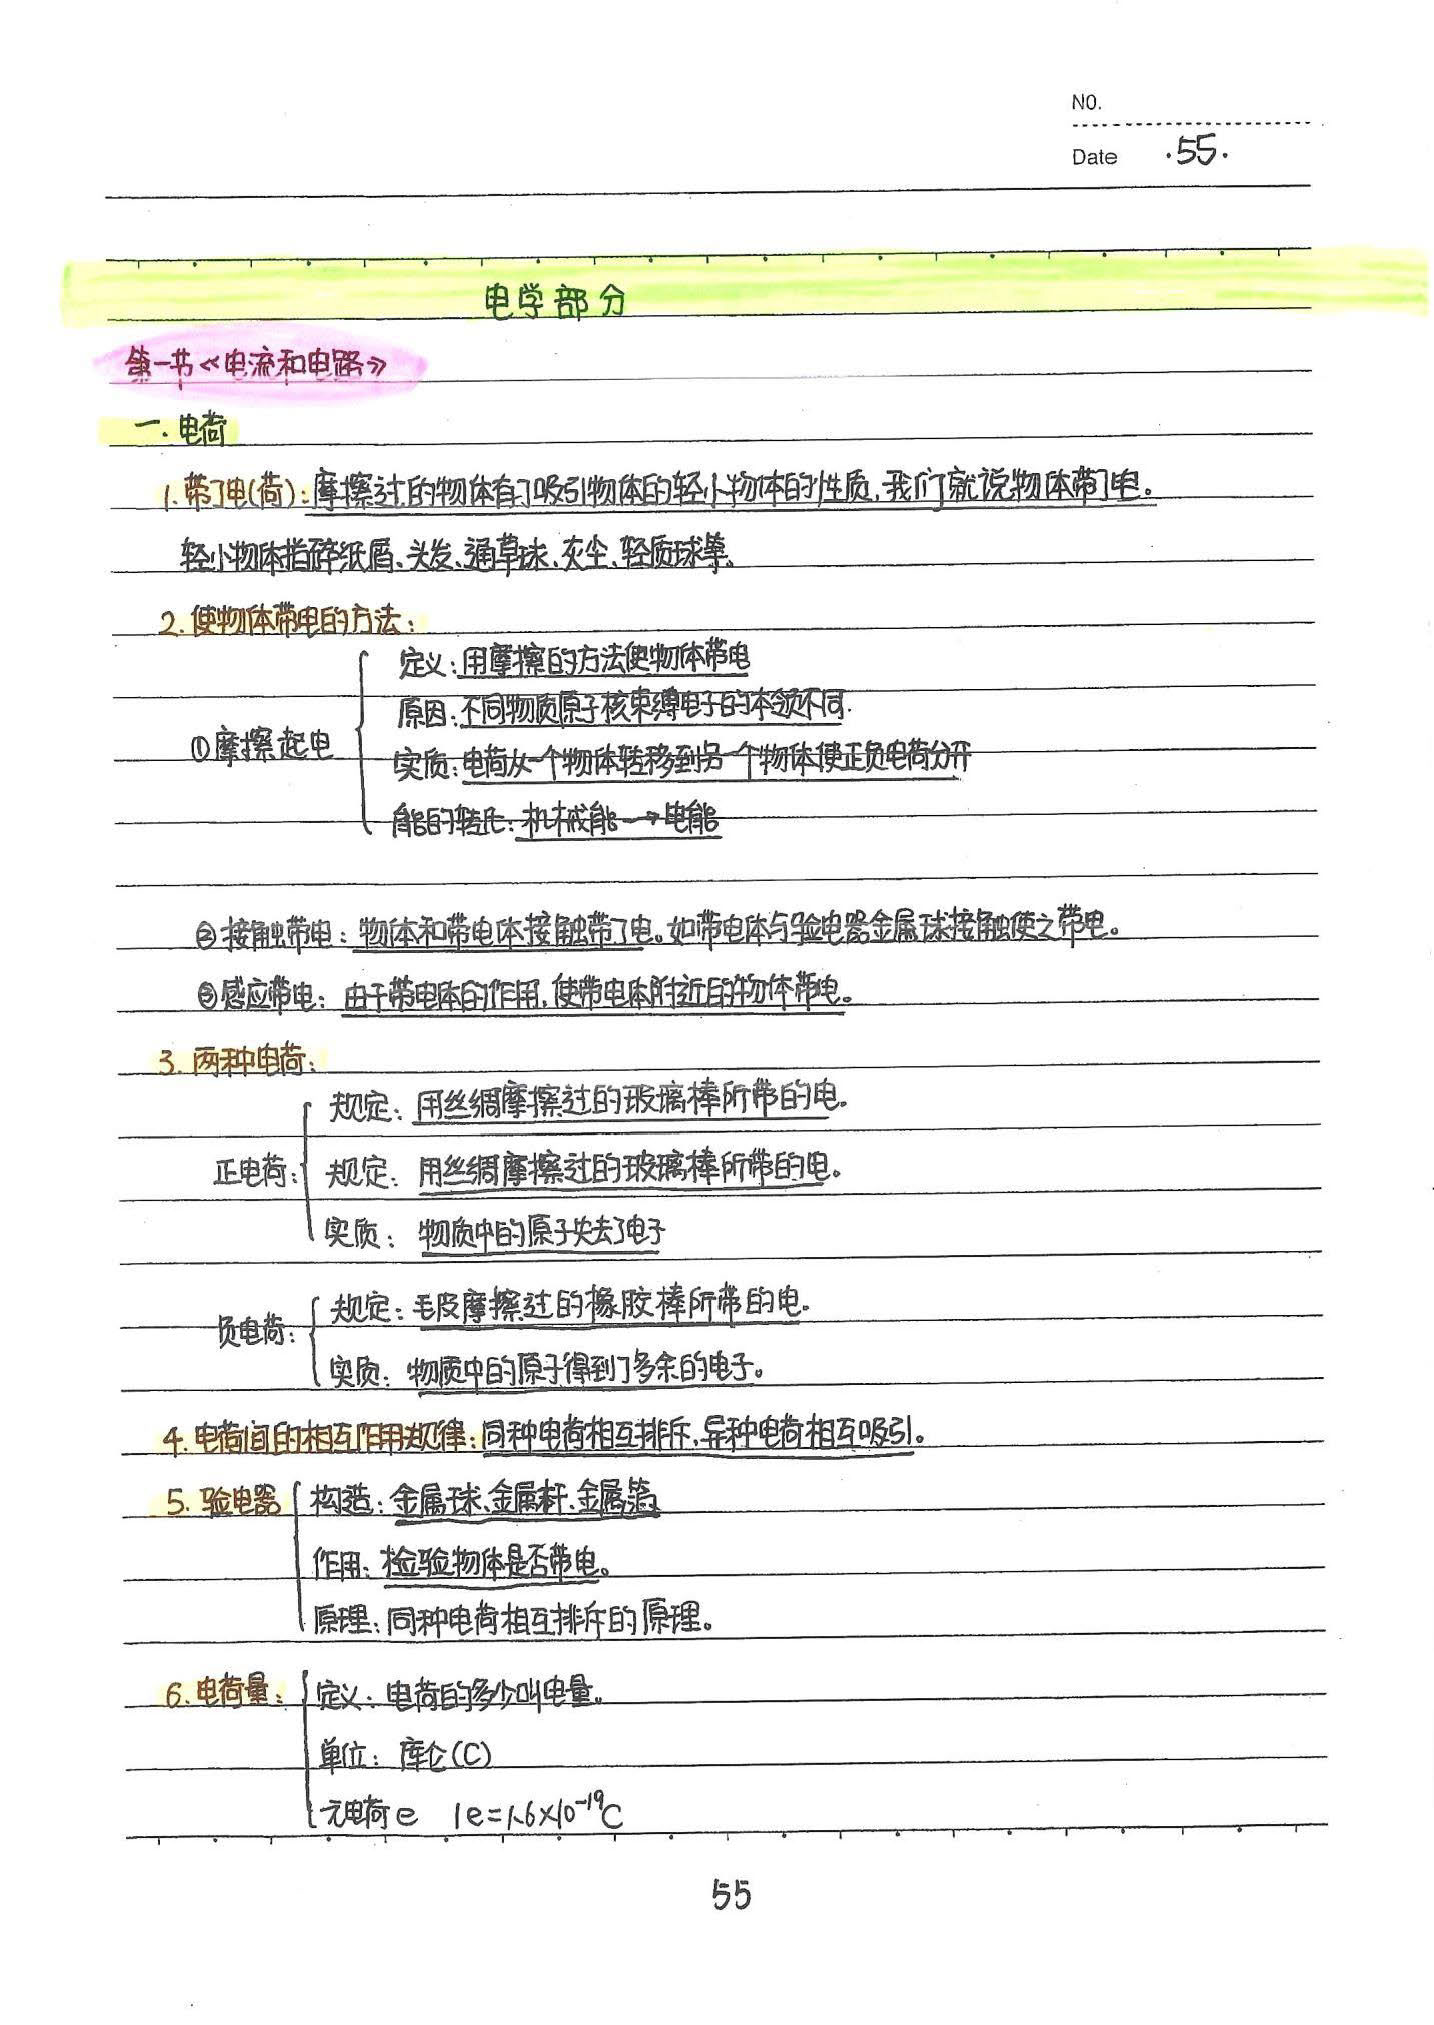 NO.
Date .55.
电学部分
第一节《电流和电路》
一.电荷
1.带了电(荷):摩擦过的物体有了吸引物体的轻小物体的性质,我们就说物体带了电。
轻小物体指碎纸屑、头发、通草球、灰尘、轻质球等。
2.使物体带电的方法:
①摩擦起电
定义:用摩擦的方法使物体带电
原因:不同物质原子核束缚电子的本领不同.
实质:电荷从一个物体转移到另一个物体使正负电荷分开
能的转化:机械能→电能
②接触带电:物体和带电体接触带了电。如带电体与验电器金属球接触使之带电。
③感应带电:由于带电体的作用,使带电体附近的物体带电。
3.两种电荷:
正电荷:
规定:用丝绸摩擦过的玻璃棒所带的电。
规定:用丝绸摩擦过的玻璃棒所带的电。
实质:物质中的原子失去了电子
负电荷:
规定:毛皮摩擦过的橡胶棒所带的电.
实质:物质中的原子得到了多余的电子。
4.电荷间的相互作用规律:同种电荷相互排斥,异种电荷相互吸引。
5.验电器
构造:金属球、金属杆、金属箔
作用:检验物体是否带电。
原理:同种电荷相互排斥的原理。
6.电荷量:
定义:电荷的多少叫电量。
单位:库仑(C)
元电荷e 1e=1.6×10⁻¹⁹C
55